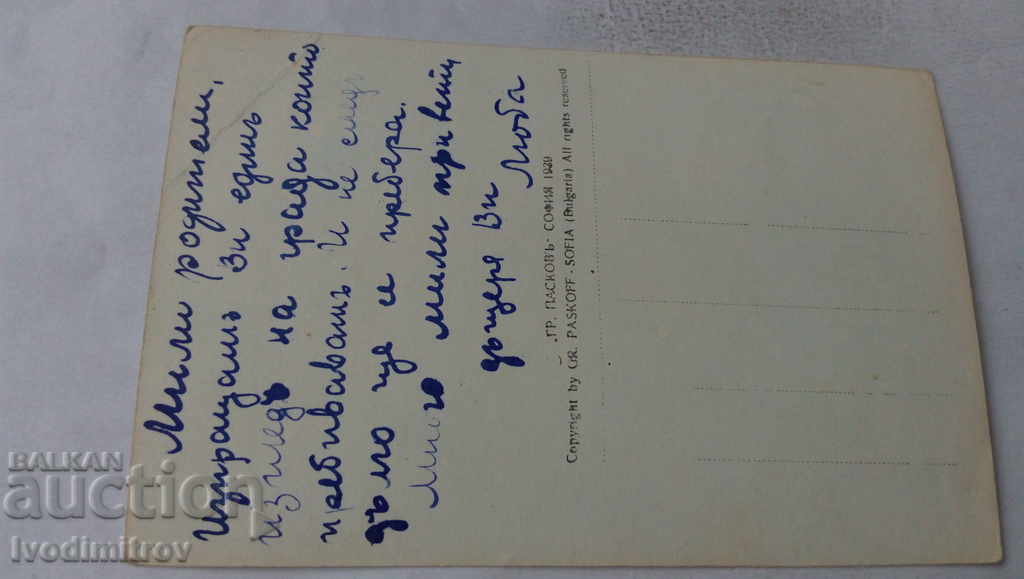 Мили родители,
Изпращамъ Ви единъ
изгледъ на града който
пребивавамъ. И не след
дълго ще се прибера.
Много мили привети
дъщеря Ви
Люба
ГР. ПАСКОВЪ - СОФИЯ 1929
Copyright by GR. PASKOFF - SOFIA (Bulgaria) All rights reserved
BALKAN
auction
Ivodimitrov